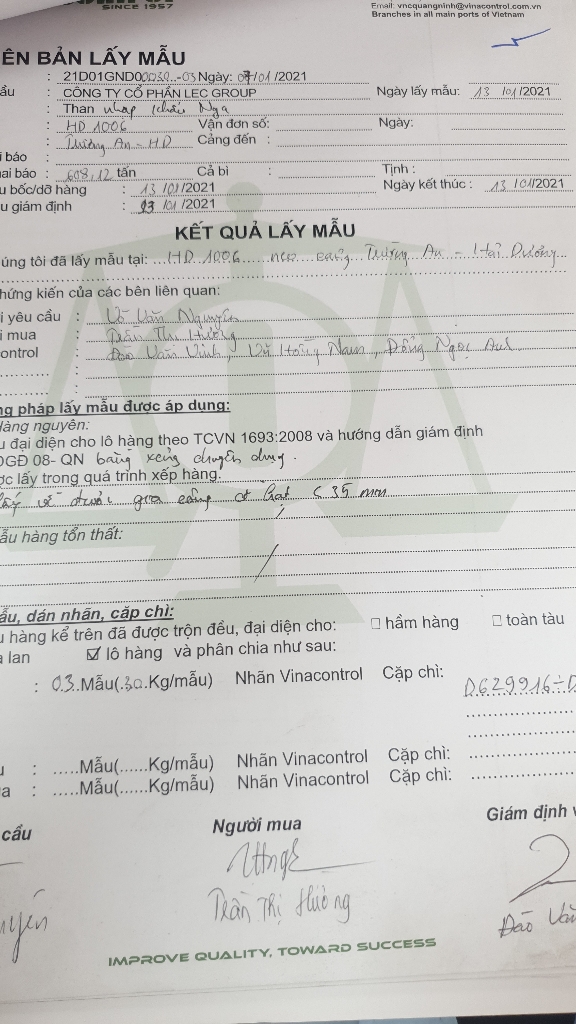 SINCE 1957
Email: vncquangninh@vinacontrol.com.vn
Branches in all main ports of Vietnam
ÊN BẢN LẤY MẪU
: 21D01GND00 -03 Ngày: 07/01/2021
ầu : CÔNG TY CỔ PHẦN LEC GROUP Ngày lấy mẫu: 13/01/2021
: Than nhập khẩu Nga
: HD 1006 Vận đơn số: Ngày:
: Trường An - HD Cảng đến :
i báo :
ai báo : 608,12 tấn Cả bì : Tịnh :
u bốc/dỡ hàng : 13/01/2021 Ngày kết thúc : 13/01/2021
u giám định : 13/01/2021
KẾT QUẢ LẤY MẪU
úng tôi đã lấy mẫu tại: HD 1006 neo cảng Trường An - Hải Dương
hứng kiến của các bên liên quan:
i yêu cầu : Võ Văn Nguyên
i mua : Trần Thị Hường
control : Đào Văn Vinh, Vũ Hoàng Nam, Đồng Ngọc
ng pháp lấy mẫu được áp dụng:
Hàng nguyên:
u đại diện cho lô hàng theo TCVN 1693:2008 và hướng dẫn giám định
DGĐ 08- QN bằng xẻng chuyên dụng.
ợc lấy trong quá trình xếp hàng.
lấy về được qua cỡ hạt ≤ 35 mm
ẫu hàng tổn thất:
/
ẫu, dán nhãn, cặp chì:
u hàng kể trên đã được trộn đều, đại diện cho: ☐ hầm hàng ☐ toàn tàu
à lan ☑ lô hàng và phân chia như sau:
: 03 Mẫu(30 Kg/mẫu) Nhãn Vinacontrol Cặp chì: D629916÷D
u : .....Mẫu(......Kg/mẫu) Nhãn Vinacontrol Cặp chì:
ua : .....Mẫu(......Kg/mẫu) Nhãn Vinacontrol Cặp chì:
cầu Người mua Giám định v
uyên Trần Thị Hường Đào Văn
IMPROVE QUALITY, TOWARD SUCCESS